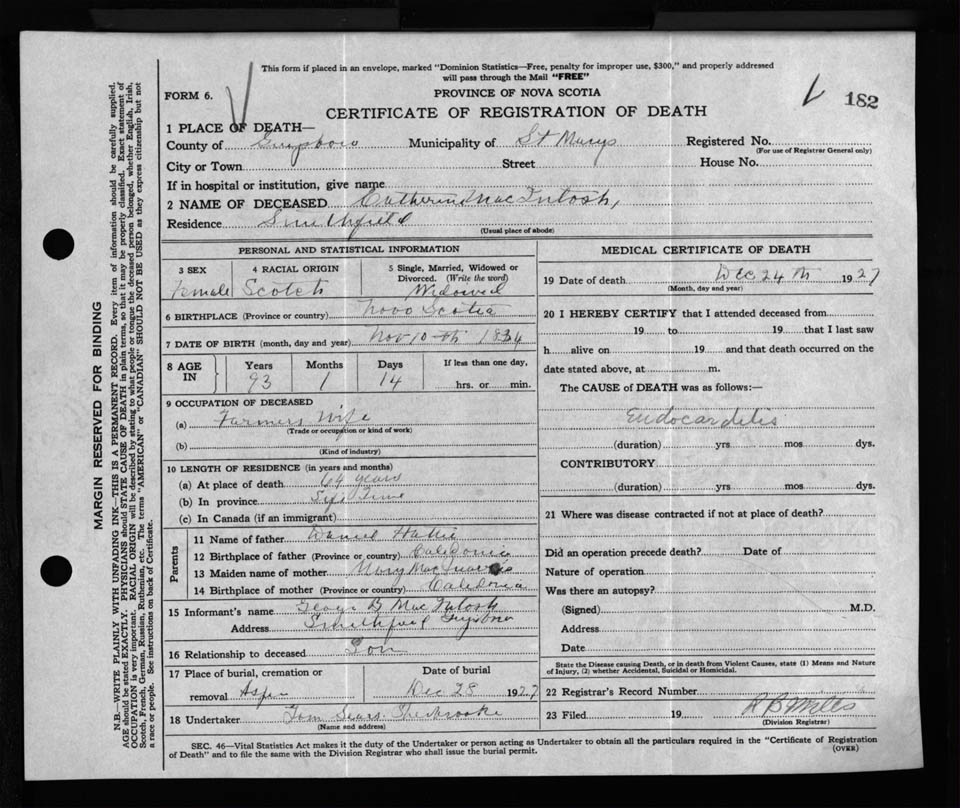 This form if placed in an envelope, marked "Dominion Statistics—Free, penalty for improper use, $300," and properly addressed
will pass through the Mail "FREE"
FORM 6.
PROVINCE OF NOVA SCOTIA
182
CERTIFICATE OF REGISTRATION OF DEATH
1 PLACE OF DEATH—
County of Municipality of St Marys Registered No.
(For use of Registrar General only)
City or Town Street House No.
If in hospital or institution, give name
2 NAME OF DECEASED Catherine MacIntosh,
Residence Smithfield
(Usual place of abode)
PERSONAL AND STATISTICAL INFORMATION
3 SEX Female
4 RACIAL ORIGIN Scotch
5 Single, Married, Widowed or Divorced. (Write the word) Widowed
6 BIRTHPLACE (Province or country) Nova Scotia
7 DATE OF BIRTH (month, day and year) Nov 10th 1834
8 AGE IN Years 93 Months 1 Days 14 If less than one day, hrs. or min.
9 OCCUPATION OF DECEASED
(a) Farmers Wife
(Trade or occupation or kind of work)
(b)
(Kind of industry)
10 LENGTH OF RESIDENCE (in years and months)
(a) At place of death 64 years
(b) In province Life Time
(c) In Canada (if an immigrant)
Parents
11 Name of father Daniel Hattie
12 Birthplace of father (Province or country) Caledonia
13 Maiden name of mother Mary
14 Birthplace of mother (Province or country) Caledonia
15 Informant's name George D MacIntosh
Address Smithfield Guysboro
16 Relationship to deceased Son
17 Place of burial, cremation or removal Aspen
Date of burial Dec 28 1927
18 Undertaker Tom Sears Sherbrooke
(Name and address)
MEDICAL CERTIFICATE OF DEATH
19 Date of death Dec 24th 1927
(Month, day and year)
20 I HEREBY CERTIFY that I attended deceased from
19 to 19 that I last saw
h alive on 19 and that death occurred on the
date stated above, at m.
The CAUSE of DEATH was as follows:—
Endocarditis
(duration) yrs mos dys.
CONTRIBUTORY
(duration) yrs mos dys.
21 Where was disease contracted if not at place of death?
Did an operation precede death? Date of
Nature of operation
Was there an autopsy?
(Signed) M.D.
Address
Date
State the Disease causing Death, or in death from Violent Causes, state (1) Means and Nature
of Injury, (2) whether Accidental, Suicidal or Homicidal.
22 Registrar's Record Number
23 Filed 19 R B Miles
(Division Registrar)
SEC. 46—Vital Statistics Act makes it the duty of the Undertaker or person acting as Undertaker to obtain all the particulars required in the "Certificate of Registration
of Death" and to file the same with the Division Registrar who shall issue the burial permit.
(OVER)
MARGIN RESERVED FOR BINDING
N.B.—WRITE PLAINLY WITH UNFADING INK—THIS IS A PERMANENT RECORD. Every item of information should be carefully supplied.
AGE should be stated EXACTLY. PHYSICIANS should STATE CAUSE OF DEATH in plain terms, so that it may be properly classified. Exact statement of
OCCUPATION is very important. RACIAL ORIGIN will be described by stating to what people or tongue the deceased person belonged, whether English, Irish,
Scotch, French, German, Russian, Ruthenian, etc. The terms "AMERICAN" or "CANADIAN" SHOULD NOT BE USED as they express citizenship but not
a race or people. See instructions on back of Certificate.